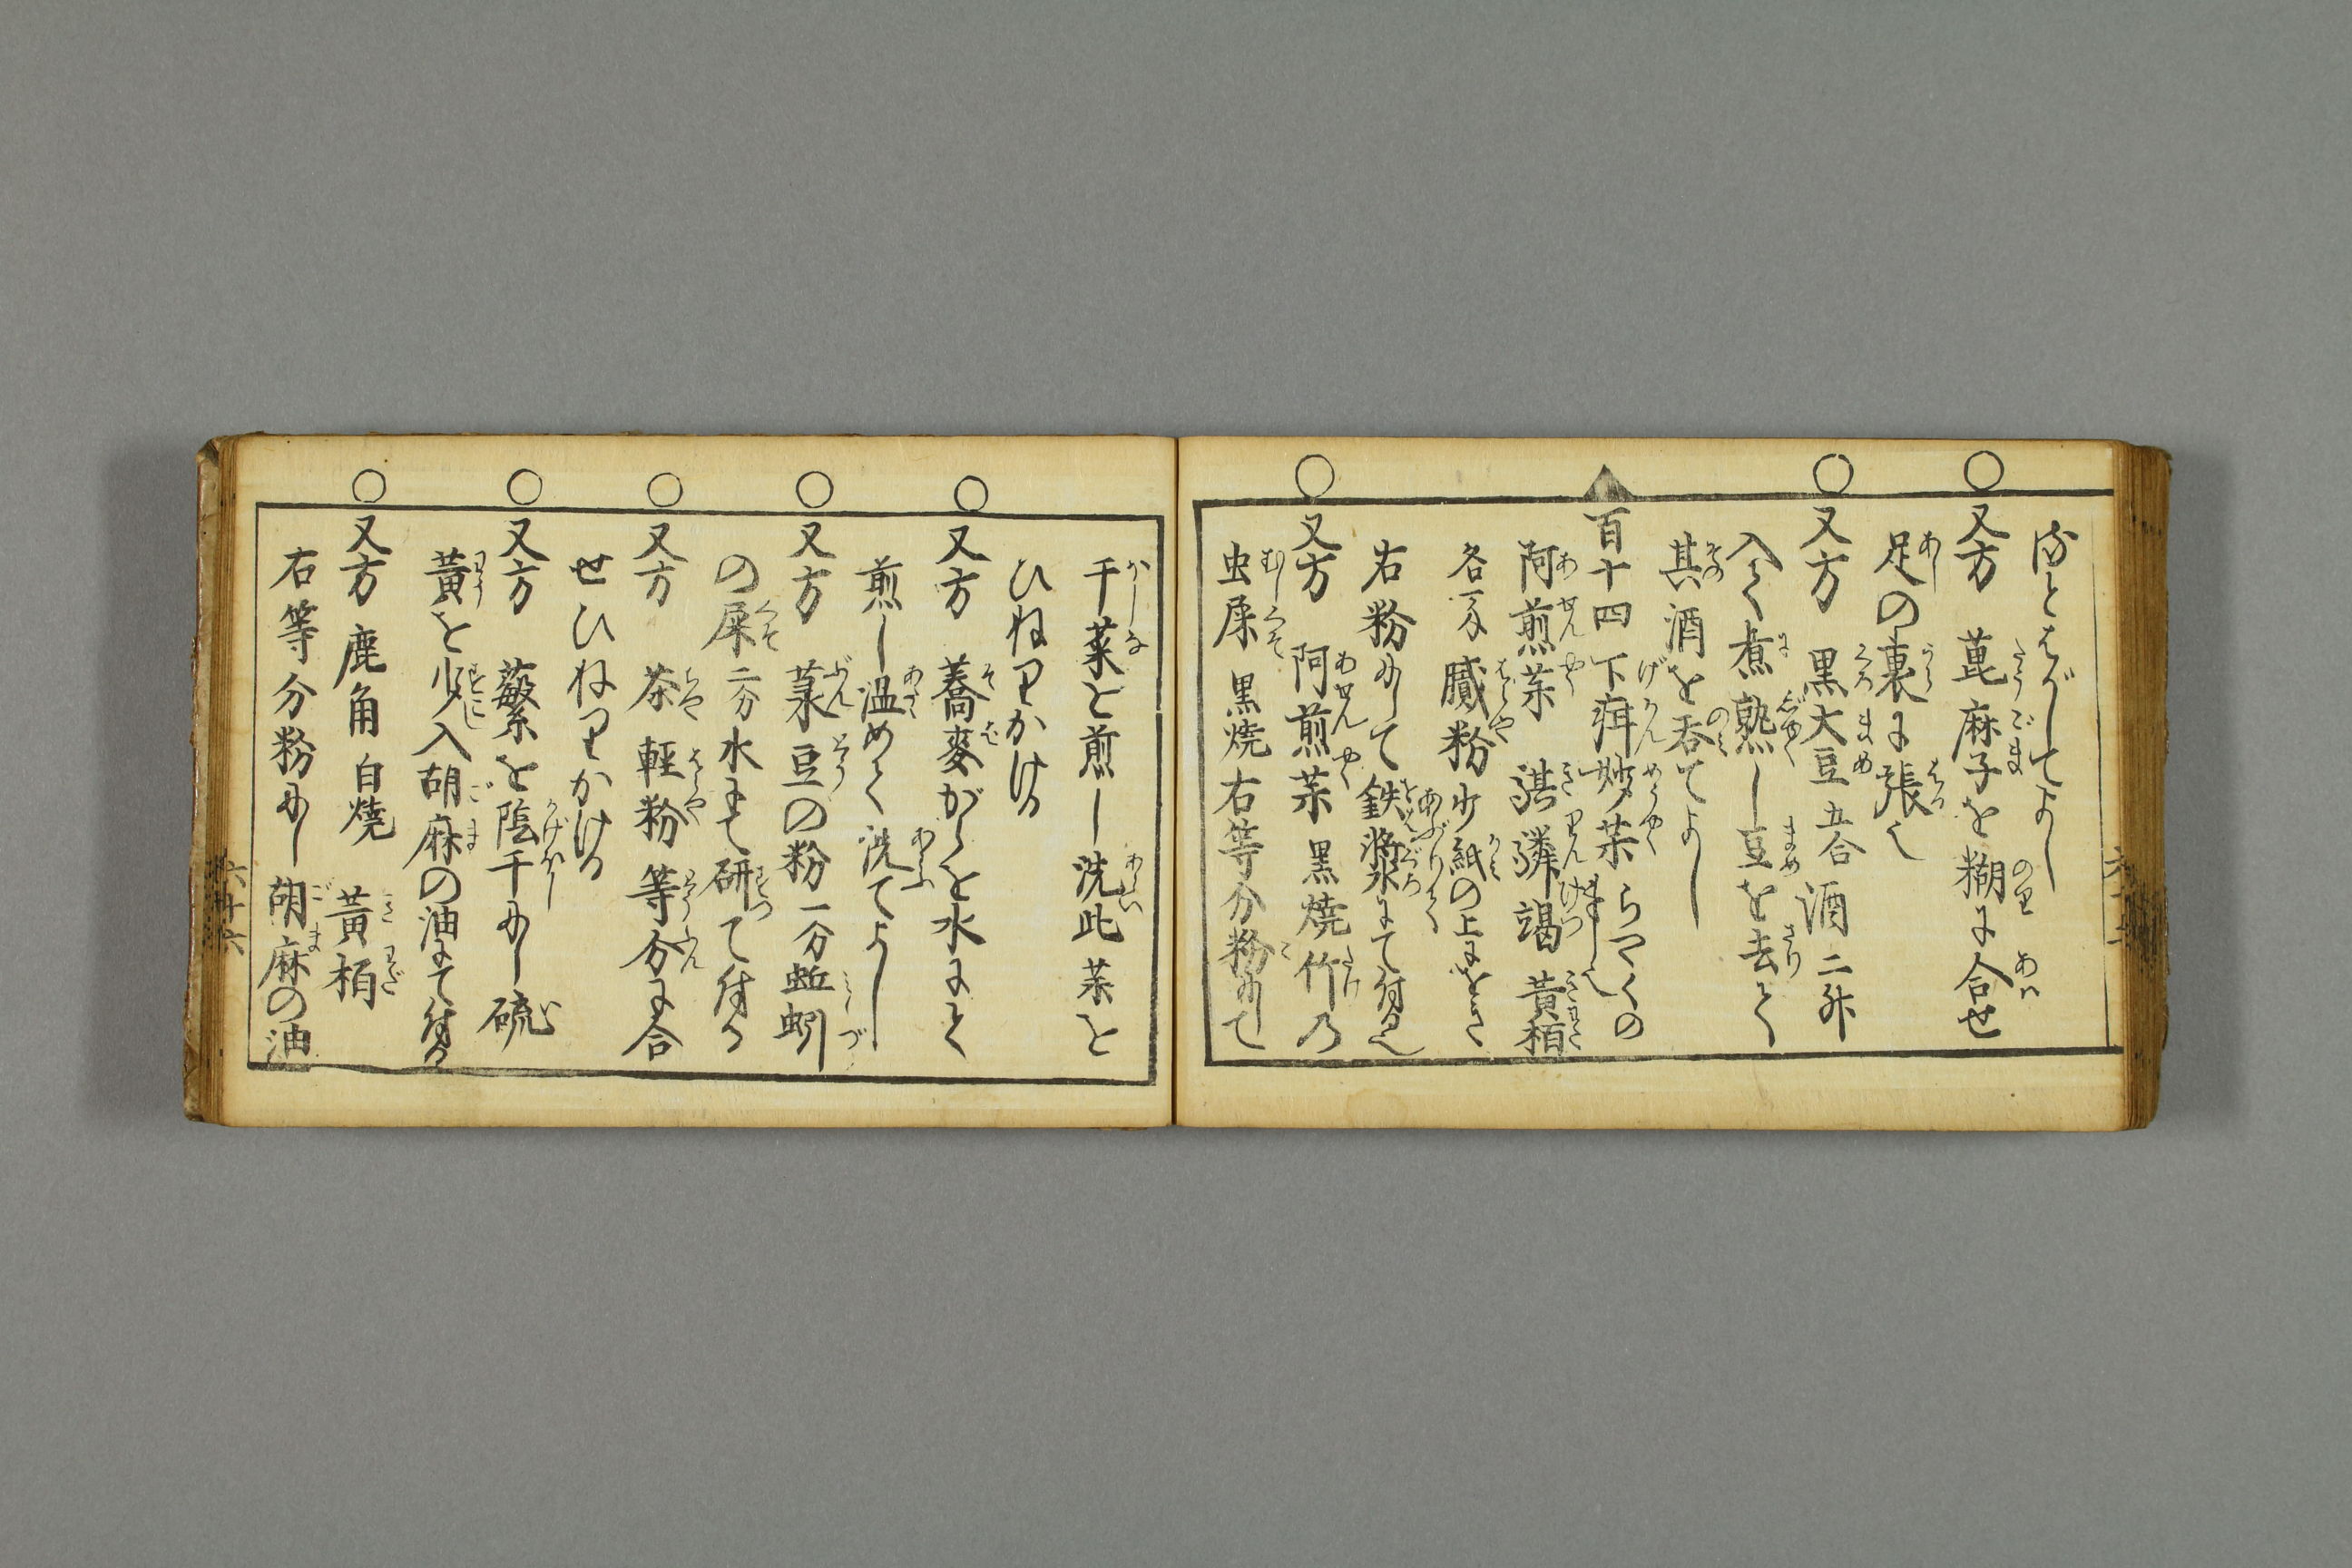 をとゝばしてよし
○又方 萆麻子を糊に合せ
足の裏に張也
○又方 黒大豆五合酒二升
入て煮熟し豆を去て
其酒を呑てよし
百十四 下疳妙薬らつくの
阿煎薬 騏驎竭 黄栢
各一匁 膩粉少紙の上にをき
右粉にして鉄漿にて付る也
○又方 阿煎薬黒焼竹乃
虫屎黒焼右等分粉にして
干菜を煎し洗此薬を
ひねりかける
○又方 蕎麦がらを水にて
煎し温めて洗てよし
○又方 菉豆の粉一分蚯蚓
の屎二分水にて研て付る
○又方 茶 軽粉 等分に合
せひねりかける
○又方 蘩を陰干にし硫
黄を少入胡麻の油にて付る
○又方 鹿角白焼 黄栢
右等分粉にし胡麻の油
六十六